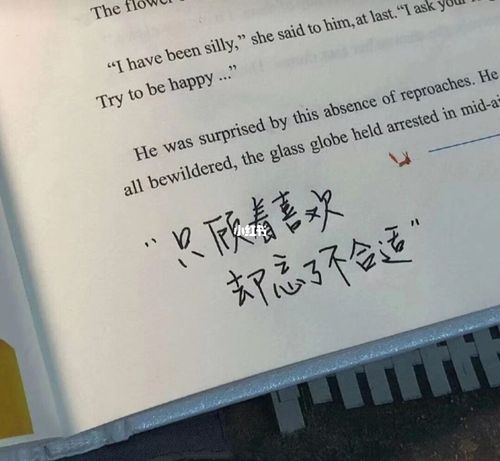 The flower
“I have been silly,” she said to him, at last. “I ask your
Try to be happy ...”
He was surprised by this absence of reproaches. He
all bewildered, the glass globe held arrested in mid-ai
“只顾着喜欢
小红书
却忘了不合适”